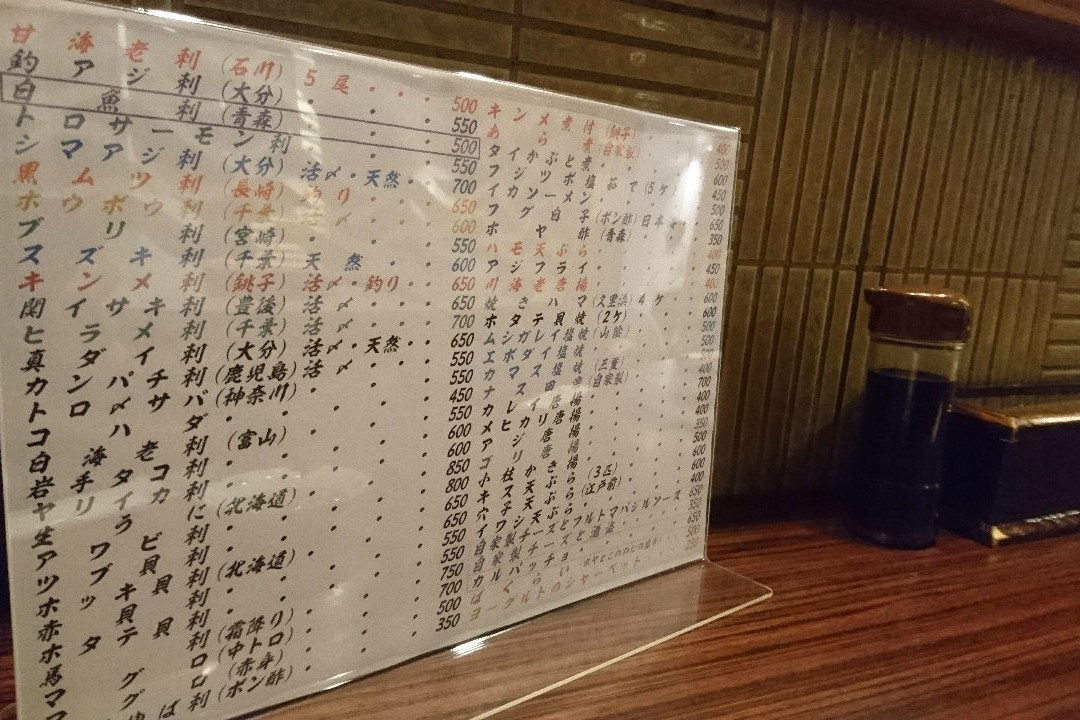 甘海老刺(石川)5尾・・・500
釣アジ刺(大分)・・・550
白魚刺(青森)・・・500
トロサーモン刺・・・550
シマアジ刺(大分)活〆・天然・・700
黒ムツ刺(長崎)釣り・・650
ホウボウ刺(千葉)活〆・・600
ブリ刺(宮崎)・・・550
スズキ刺(千葉)天然・・600
キンメ刺(銚子)活〆・釣り・・650
関イサキ刺(豊後)活〆・・650
ヒラメ刺(千葉)活〆・・700
真ダイ刺(大分)活〆・天然・・650
カンパチ刺(鹿児島)活〆・・550
トロ〆サバ(神奈川)・・・550
コハダ・・・450
白海老刺(富山)・・・550
岩手タコ刺・・・600
ヤリイカ刺
生うに(北海道)・・・850
アワビ刺・・・800
ツブ貝刺(北海道)・・・650
ホッキ貝刺・・・650
赤貝刺・・・550
ホタテ刺・・・550
馬刺(霜降り)・・・750
マグロ(中トロ)・・・700
マグロ(赤身)・・・500
ゆば刺(ポン酢)・・・350
キンメ煮付(銚子)・・
あら煮(自家製)・・500
タイかぶと煮・・600
フジツボ塩茹で(5ケ)・450
イカソーメン・・500
フグ白子(ポン酢)日本・650
ホヤ酢(青森)・・350
ハモ天ぷら・・400
アジフライ・・450
川海老唐揚・・400
焼きハマ(久里浜)4ケ・600
ホタテ貝焼(2ケ)・・600
ムシガレイ塩焼(山陰)・500
エボダイ塩焼・・
カマス塩焼(三重)・400
ナス田楽(自家製)・700
カレイ唐揚・・400
メヒカリ唐揚・・400
アジ唐揚・・350
ゴリ唐揚・・500
小柱かき・・600
キス天ぷら(3匹)・600
穴子天ぷら(江戸前)・400
イワシ天ぷら・・650
自家製チーズとフルトマバジルソース 350
自家製チーズと酒盗・・650
カルパッチョ・・500
ばくらい ホヤとこのわたの塩辛
ヨーグルトのシャーベット